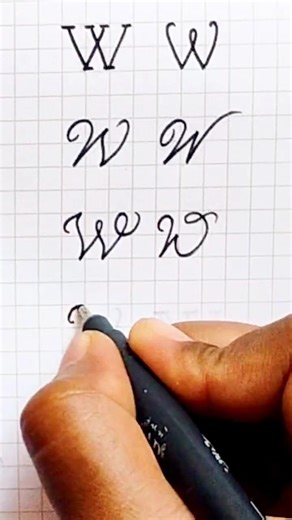 W W
W W
W W